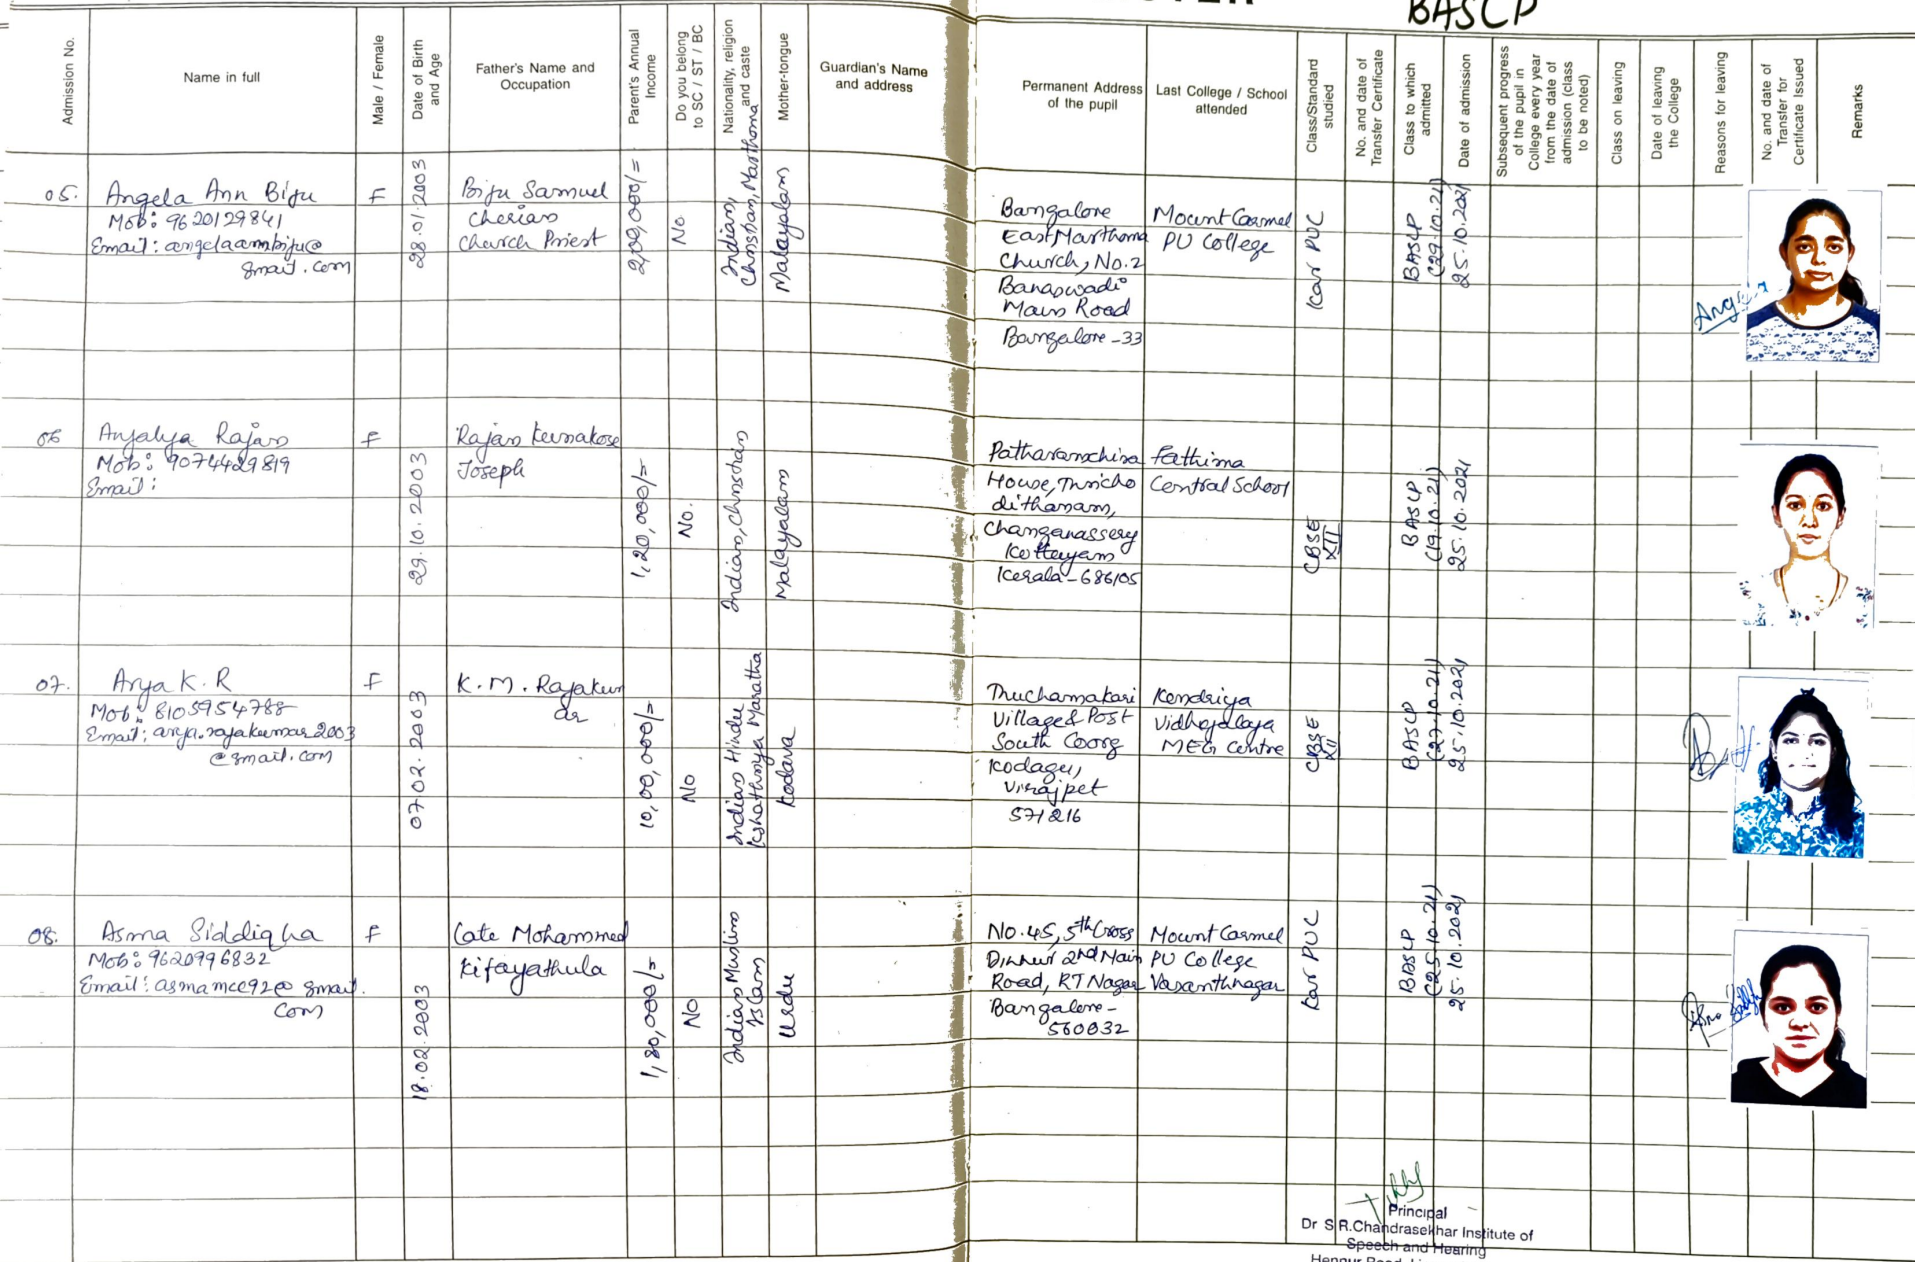 BASLP
Admission No.
Name in full
Male / Female
Date of Birth
and Age
Father's Name and
Occupation
Parent's Annual
Income
Do you belong
to SC / ST / BC
Nationality, religion
and caste
Mother-tongue
Guardian's Name
and address
Permanent Address
of the pupil
Last College / School
attended
Class/Standard
studied
No. and date of
Transfer Certificate
Class to which
admitted
Date of admission
Subsequent progress
of the pupil in
College every year
from the date of
admission (class
to be noted)
Class on leaving
Date of leaving
the College
Reasons for leaving
No. and date of
Transfer for
Certificate Issued
Remarks
05.
Angela Ann Biju
Mob: 9620129841
Email: angelaannbiju@
gmail.com
F
28.01.2003
Biju Samuel
Cherian
Church Priest
2,00,000/=
No
Indian,
Christian, Marthoma
Malayalam
Bangalore
East Marthoma
Church, No.2
Banaswadi
Main Road
Bangalore-33
Mount Carmel
PU College
Kar PUC
BASLP
(29.10.21)
25.10.2021
06
Anjalya Rajan
Mob: 9074429819
Email:
F
29.10.2003
Rajan Kurnakose
Joseph
1,20,000/=
No.
Indian, Christian
Malayalam
Patharanchira
House, Thricho
dithanam,
Changanassery
Kottayam
Kerala-686105
Fathima
Central School
CBSE
XII
BASLP
(19.10.21)
25.10.2021
07.
Arya K.R
Mob: 8105954788
Email: arya.rajakumar2003
@gmail.com
F
07.02.2003
K.M. Rajakum
ar
10,00,000/=
No
Indian Hindu
Kshathriya Maratha
Kodava
Thuchamakari
Village & Post
South Coorg
Kodagu,
Virajpet
571216
Kendriya
Vidhyalaya
MEG Centre
CBSE
XII
BASLP
(27.10.21)
25.10.2021
08.
Asma Siddiqha
Mob: 9620996832
Email: asmamcc92@gmail.
com
F
18.02.2003
Late Mohammed
Kifayathula
1,80,000/=
No
Indian Muslim
Islam
Urdu
No.45, 5th Cross
Dinnur 2nd Main
Road, RT Nagar
Bangalore-
560032
Mount Carmel
PU College
Vasanthnagar
Kar PUC
BASLP
(25.10.21)
25.10.2021
Principal
Dr S.R.Chandrasekhar Institute of
Speech and Hearing